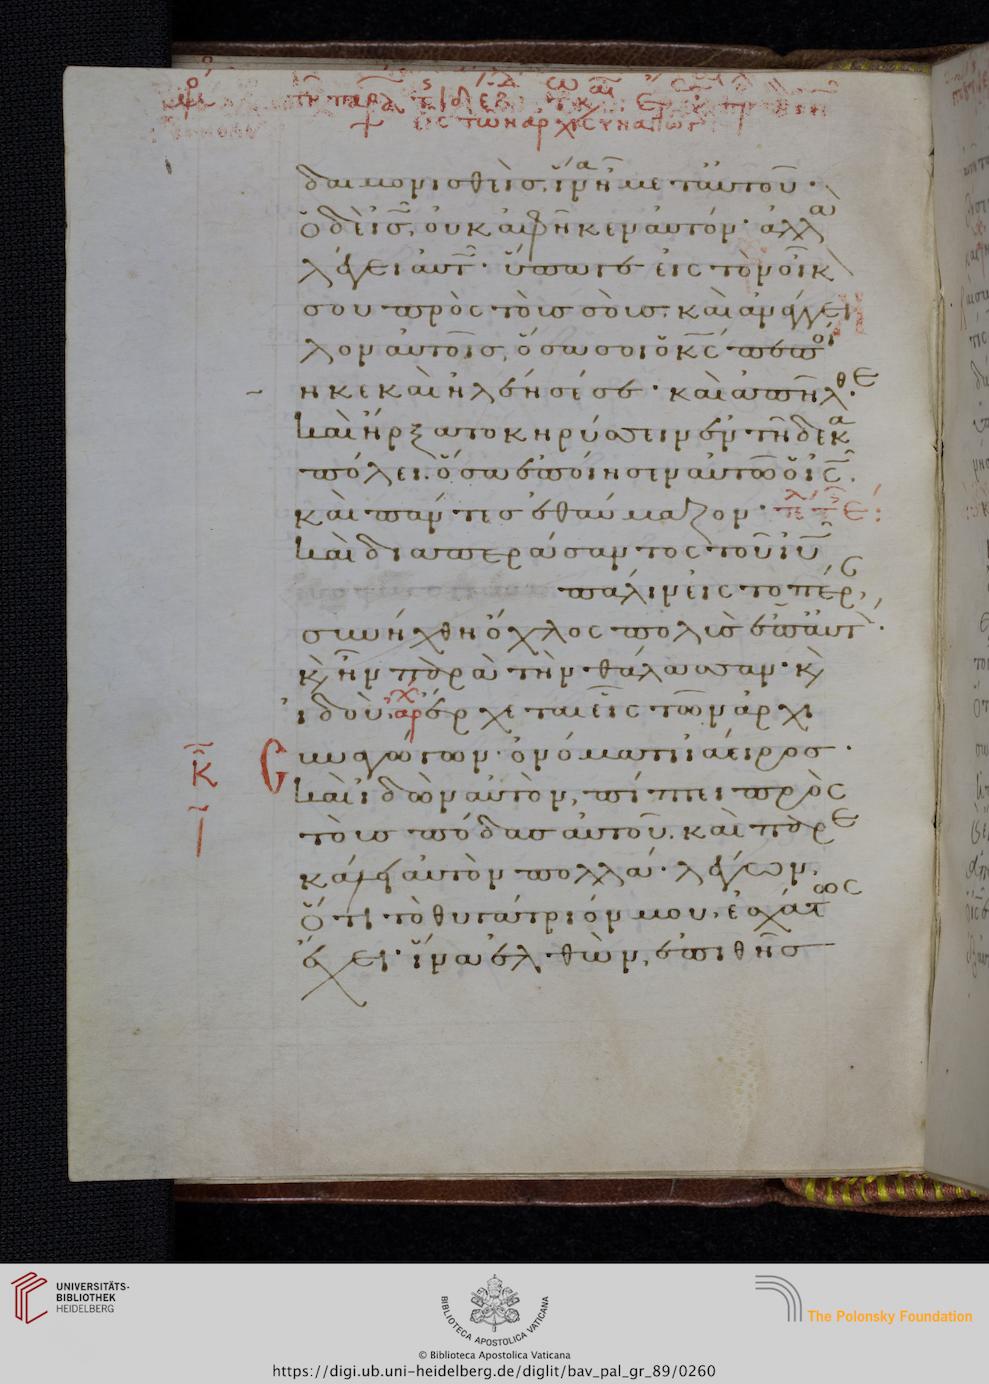 δαιμονισθεὶς, ἵνα ἦ μετ' αὐτοῦ·
ὁ δὲ ἰς, οὐκ ἀφῆκεν αὐτόν· ἀλλα
λέγει αὐτ· ὕπαγε εἰς τὸν οἶκ
σου πρὸς τοὺς σοὺς· καὶ ἀνάγγει
λον αὐτοῖς, ὅσα σοι ὁ κς πεποί
ηκε καὶ ἠλέησέ σε· καὶ ἀπῆλθε·
καὶ ἤρξατο κηρύσσειν ἐν τῆ δεκα
πόλει. ὅσα ἐποίησεν αὐτῶ ὁ ις.
καὶ πάντες ἐθαύμαζον·
καὶ διαπεράσαντος τοῦ ιυ
πάλιν εἰς τὸ πέρ,
συνήχθη ὄχλος πολὺς ἐπ' αὐτ·
κ ἦν παρὰ τὴν θάλασσαν· κ
ἰδοὺ ἀρχ ἔρχεται εἷς τῶν ἀρχι
συναγώγων· ὀνόματι ἰάειρος·
καὶ ἰδὼν αὐτὸν, πίπτει πρὸς
τοὺς πόδας αὐτοῦ. καὶ παρε
κάλει αὐτὸν πολλά· λέγων,
ὅτι τὸ θυγάτριόν μου, ἐσχάτως
ἔχει· ἵνα ἐλθὼν, ἐπιθῆς
UNIVERSITÄTS-
BIBLIOTHEK
HEIDELBERG
BIBLIOTECA APOSTOLICA VATICANA
© Biblioteca Apostolica Vaticana
The Polonsky Foundation
https://digi.ub.uni-heidelberg.de/diglit/bav_pal_gr_89/0260